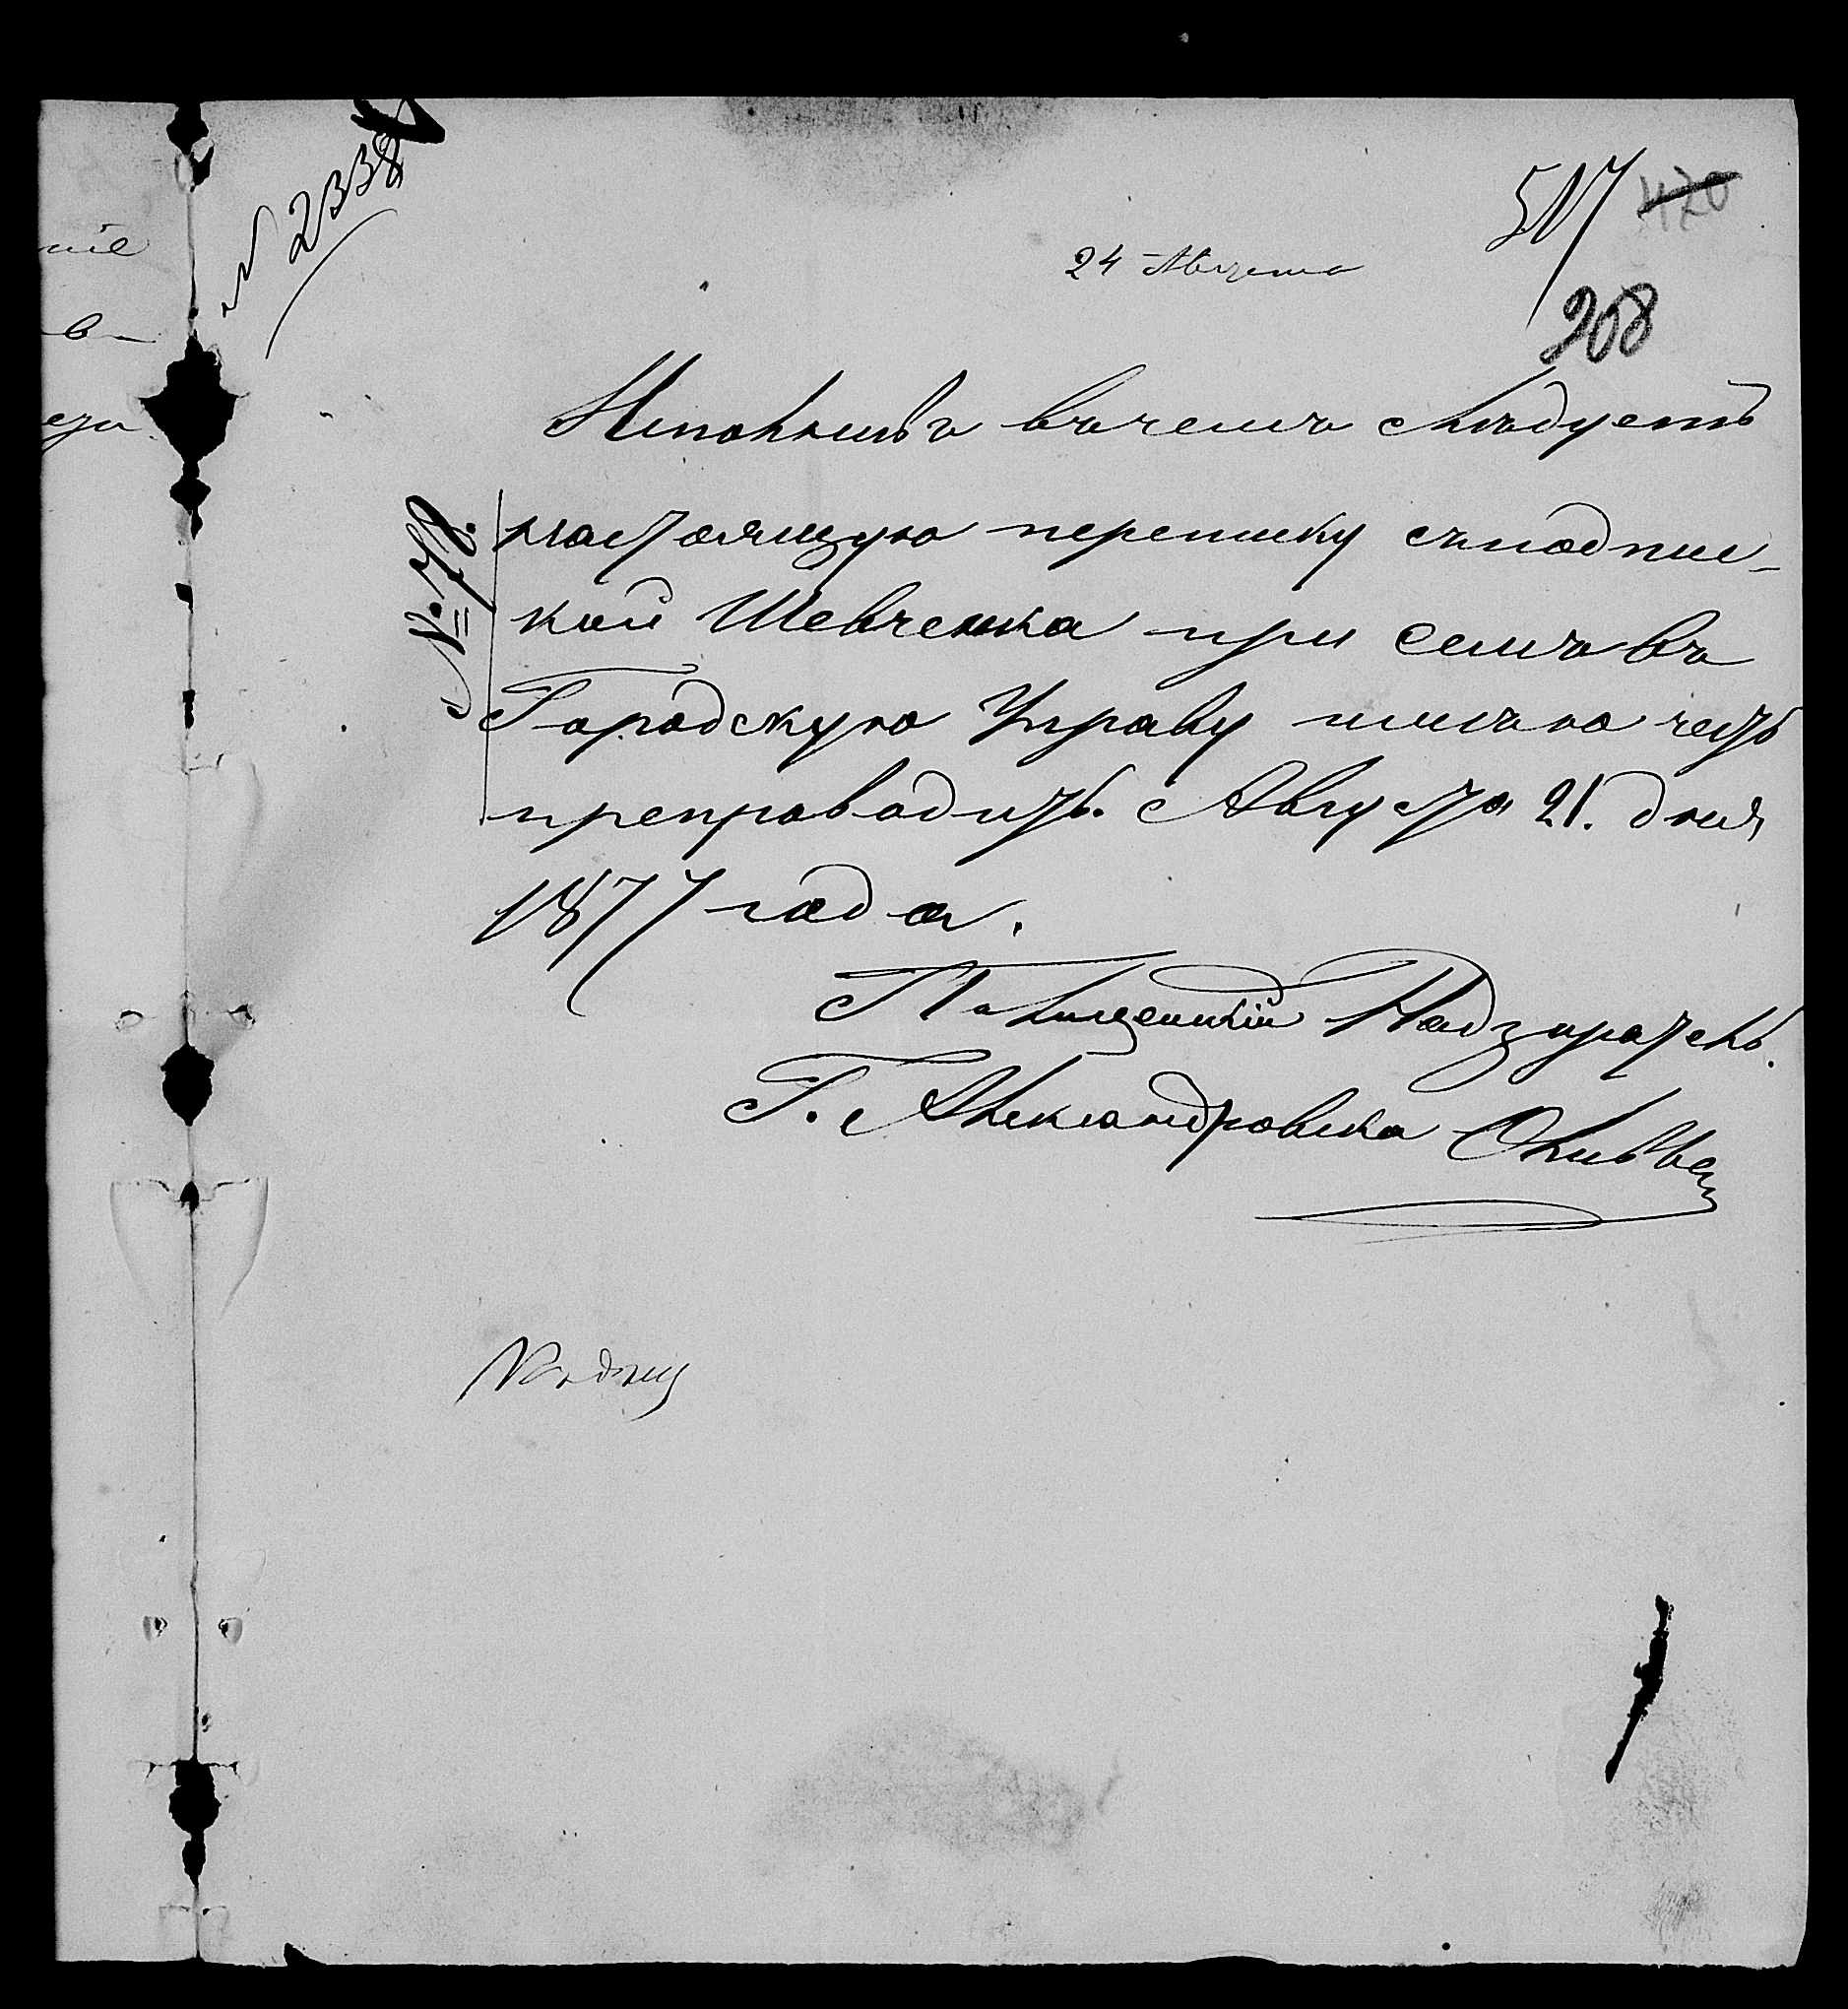 № 2338
517 420
24 Августа
208
Исполнивъ въ чемъ слѣдуетъ
№ 78.
настоящую переписку съ подпис-
кой Шевченка при семъ въ
Городскую Управу имѣю честь
препроводить. Августа 21. дня
1877 года.
Полицейскій Надзиратель
Г. Александровска